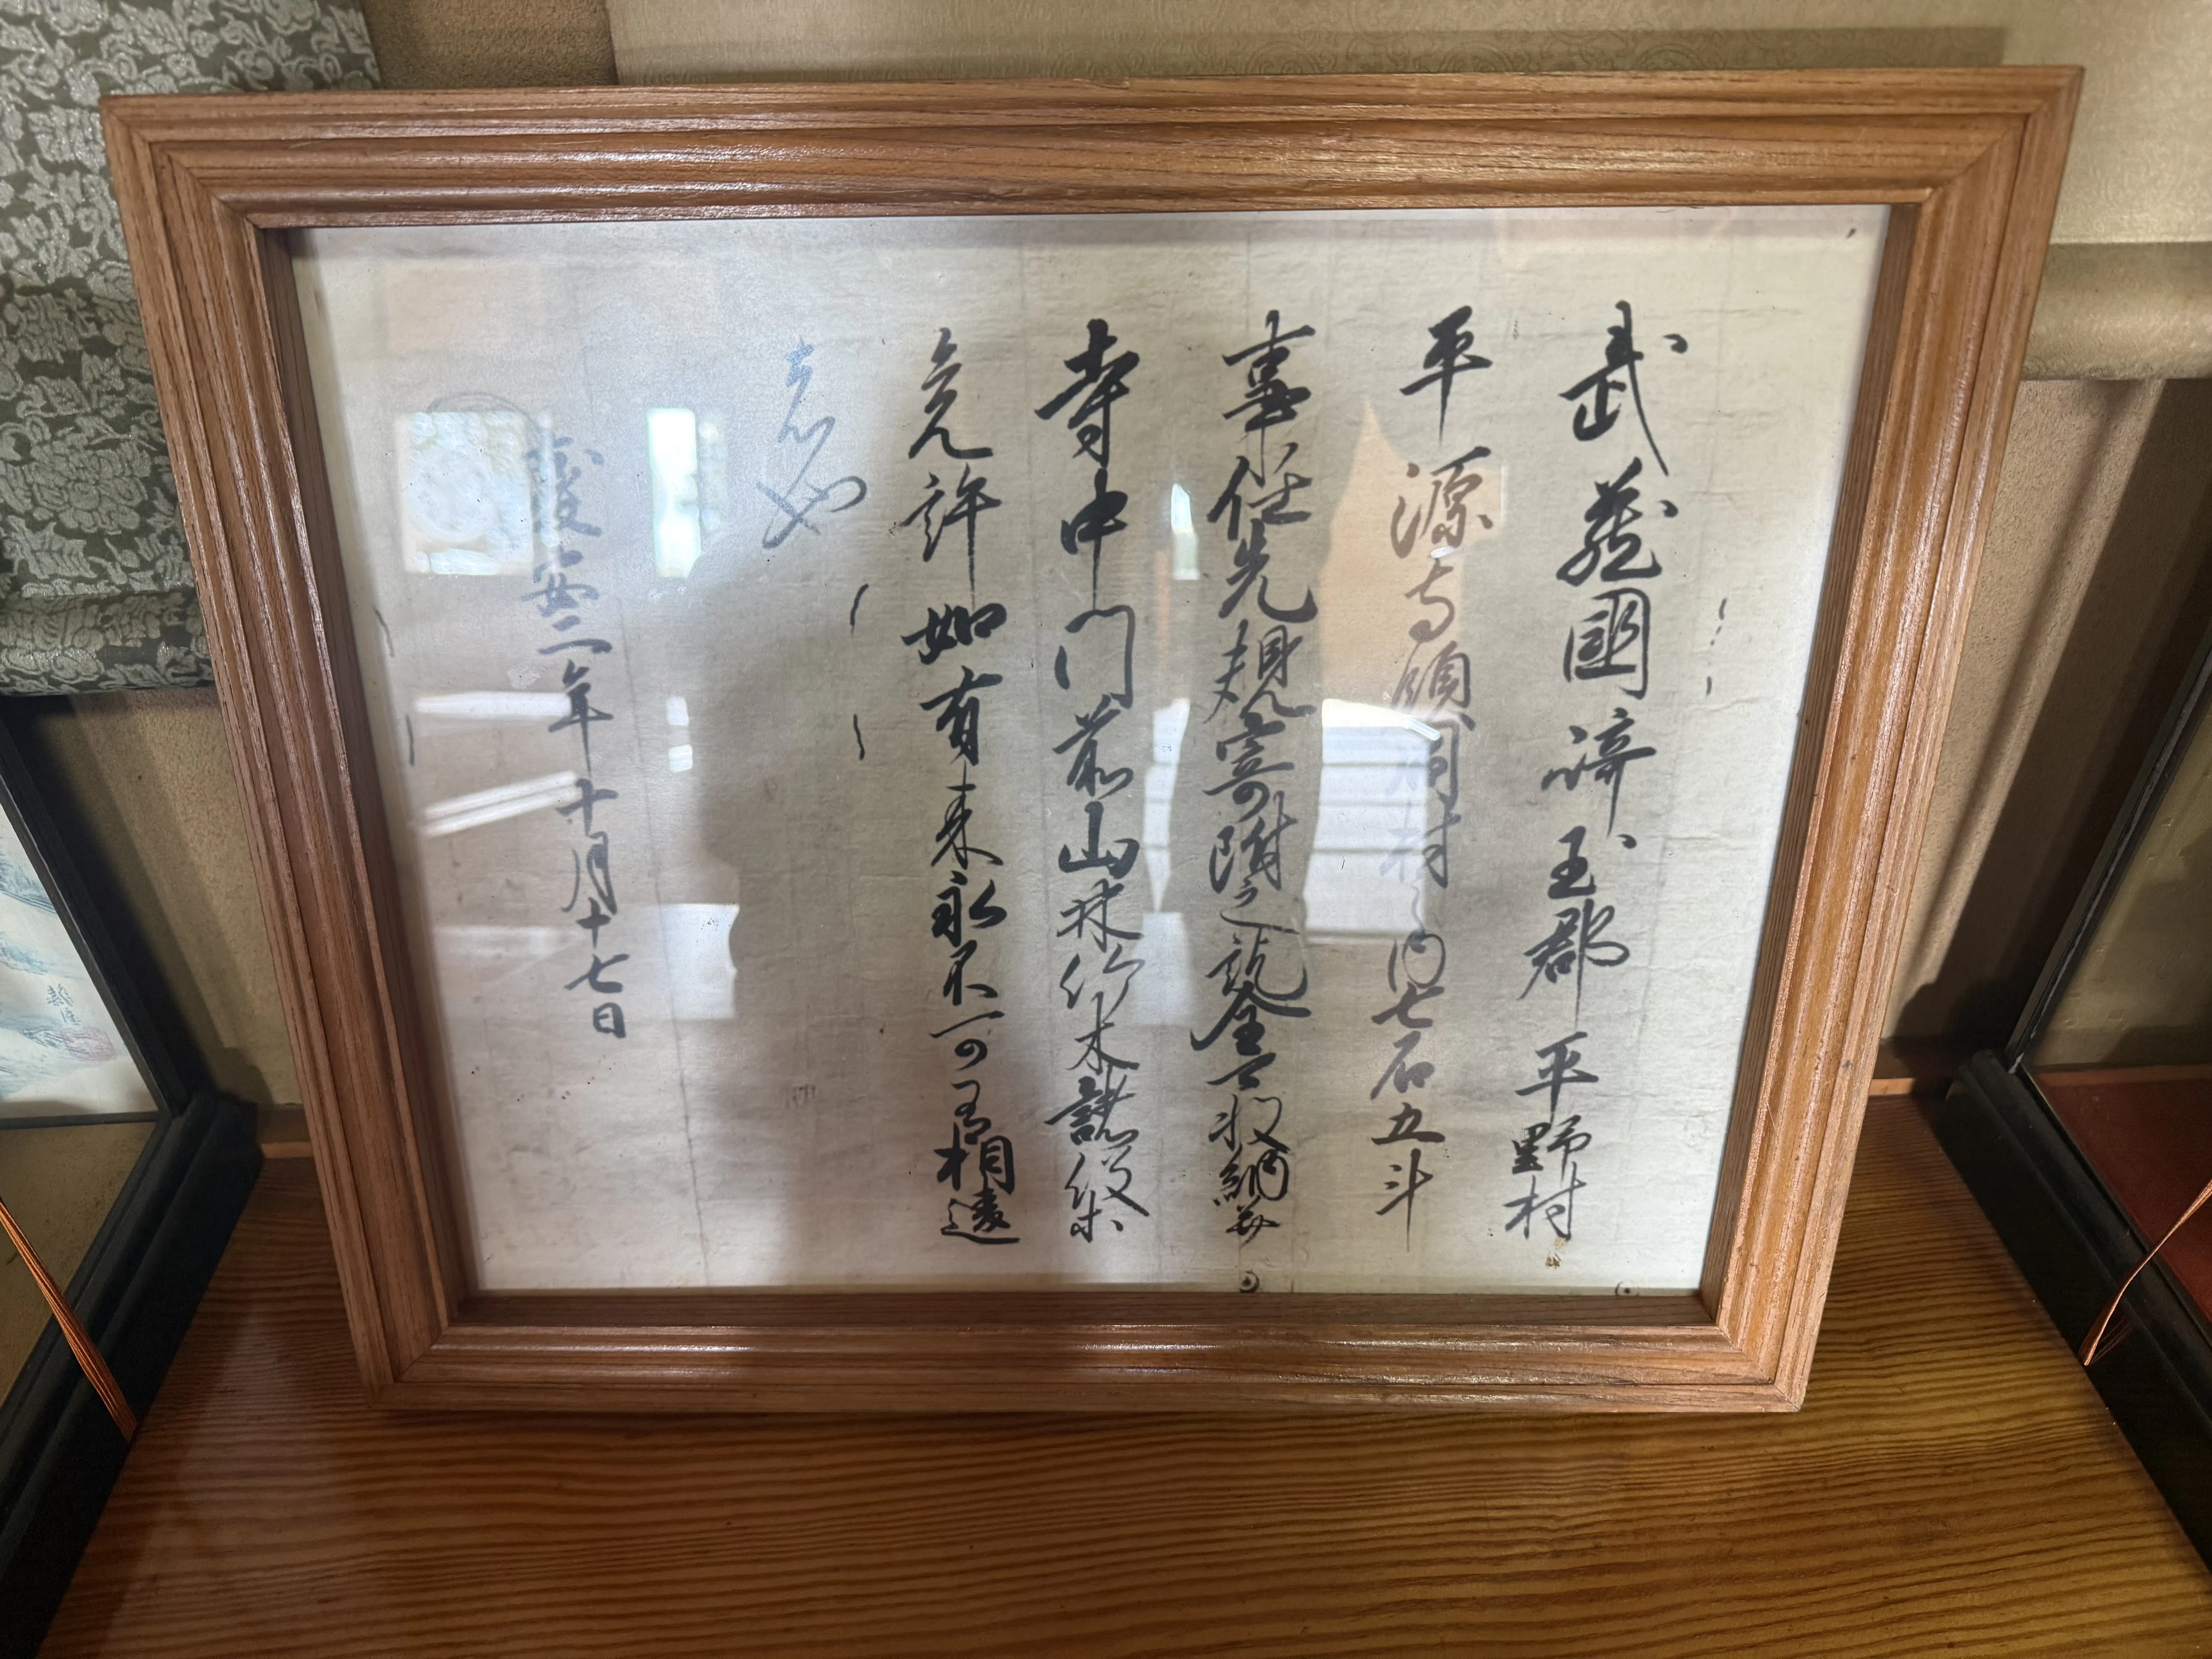 武藏國埼玉郡平野村
平源寺領同村之内七石五斗
事任先規寄附之訖全可收納并
寺中門前山林竹木諸役等
免許如有来永不可有相違
者也
慶安二年十月十七日